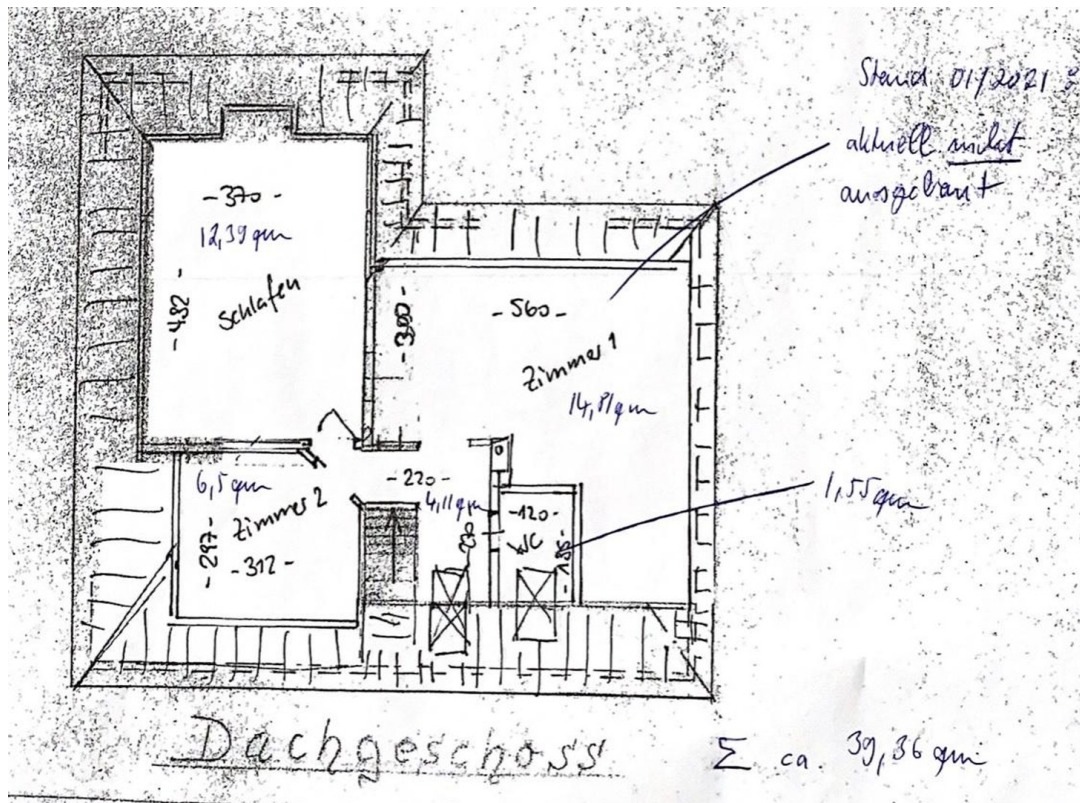 Stand 01/2021
aktuell nicht
ausgebaut
-370-
12,39 qm
-432-
Schlafen
-560-
-300-
Zimmer 1
14,81 qm
6,5 qm
Zimmer 2
-297-
-312-
-220-
4,11 qm
-120-
WC
1,55 qm
Dachgeschoss
Σ ca. 39,36 qm